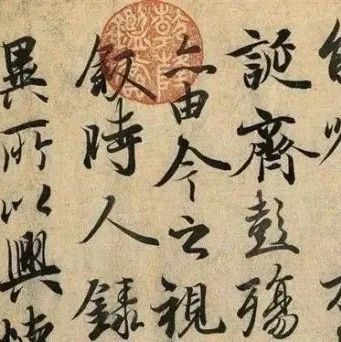 誕齊彭殤
亦由今之視
敘時人錄
異所以興懷